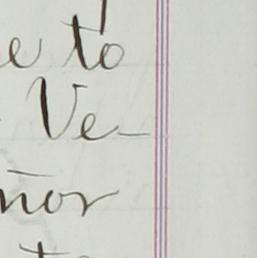 e to
Ve-
nor
to